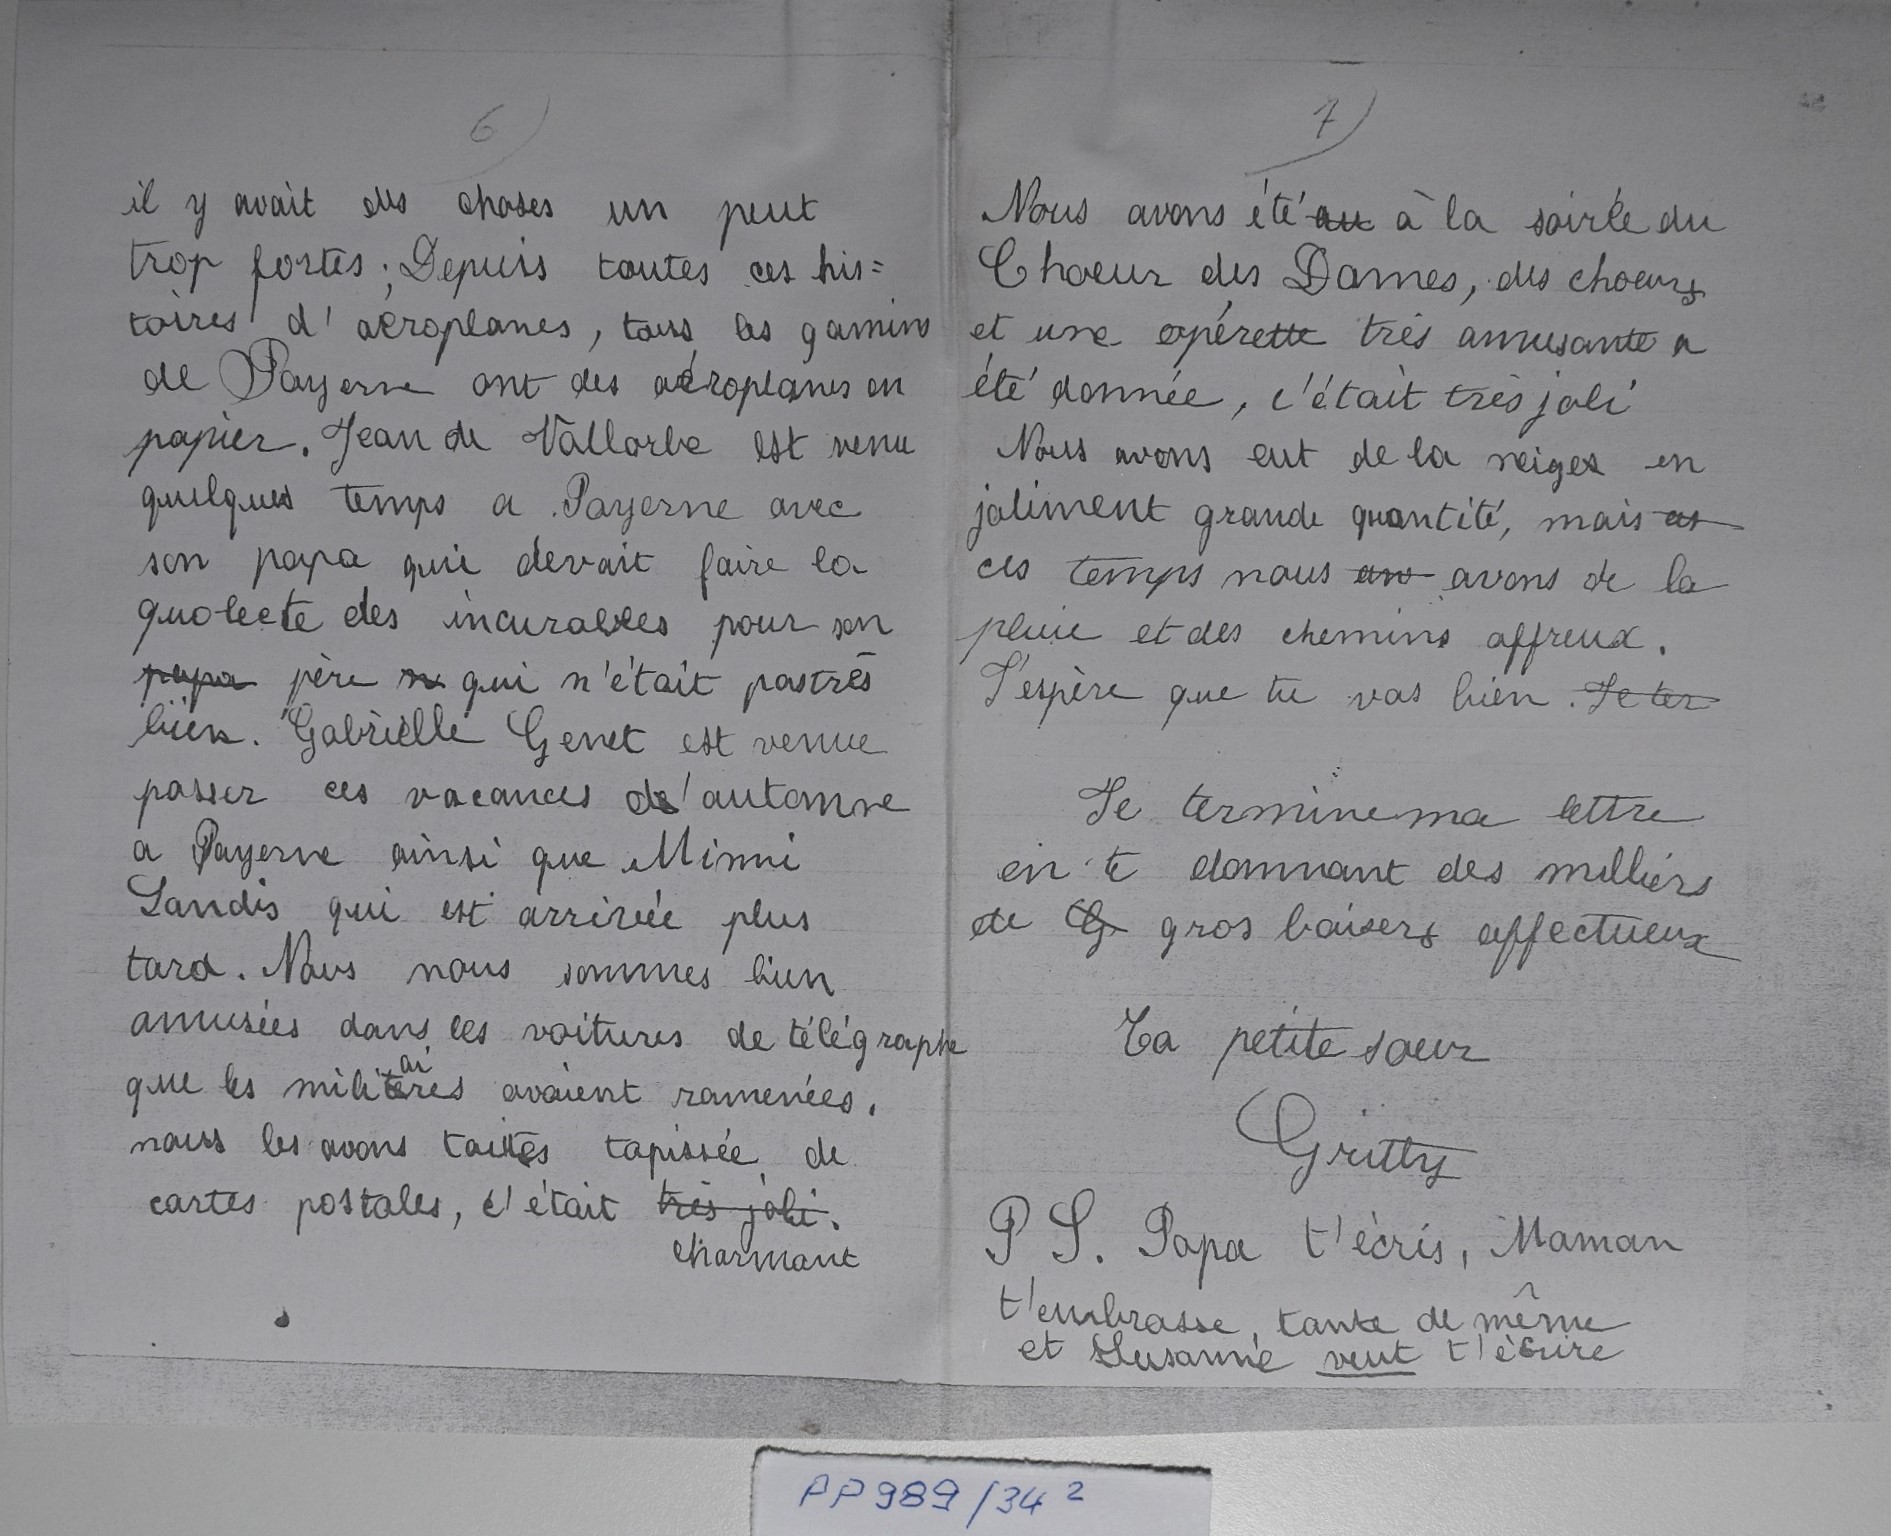 6)
il y avait des choses un peut
trop fortes; Depuis toutes ces his=
toires d'aéroplanes, tous les gamins
de Payerne ont des aéroplanes en
papier. Jean de Vallorbe est venu
quelques temps a Payerne avec
son papa qui devait faire la
quolecte des incurables pour son
papa père n qui n'était pas très
bien. Gabrielle Genet est venue
passer ces vacances d'automne
a Payerne ainsi que Mimi
Landis qui est arrivée plus
tard. Nous nous sommes bien
amusées dans les voitures de télégraphe
que les militaires avaient ramenées.
nous les avons toutes tapissée de
cartes postales, c'était très joli.
charmant
7)
Nous avons été au à la soirée du
Choeur des Dames, des choeurs
et une opérette très amusante a
été donnée, c'était très joli
Nous avons eut de la neiges en
joliment grande quantité, mais es
ces temps nous an avons de la
pluie et des chemins affreux.
J'espère que tu vas bien. Je ter
Je termine ma lettre
en te donnant des milliers
de G gros baisers affectueux
Ta petite soeur
Gritty
P S. Papa t'écris, Maman
t'embrasse, tante de même
et Susanne veut t'écrire
PP989/34 2